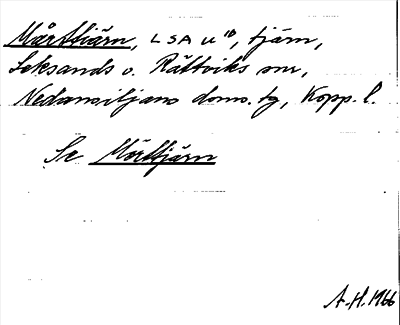 Mårttjärn, LSA u 10, tjärn,
Leksands o. Rättviks snr,
Nedansiljans doms. tg, Kopp. l.
Se Mörttjärn
A.H. 1966